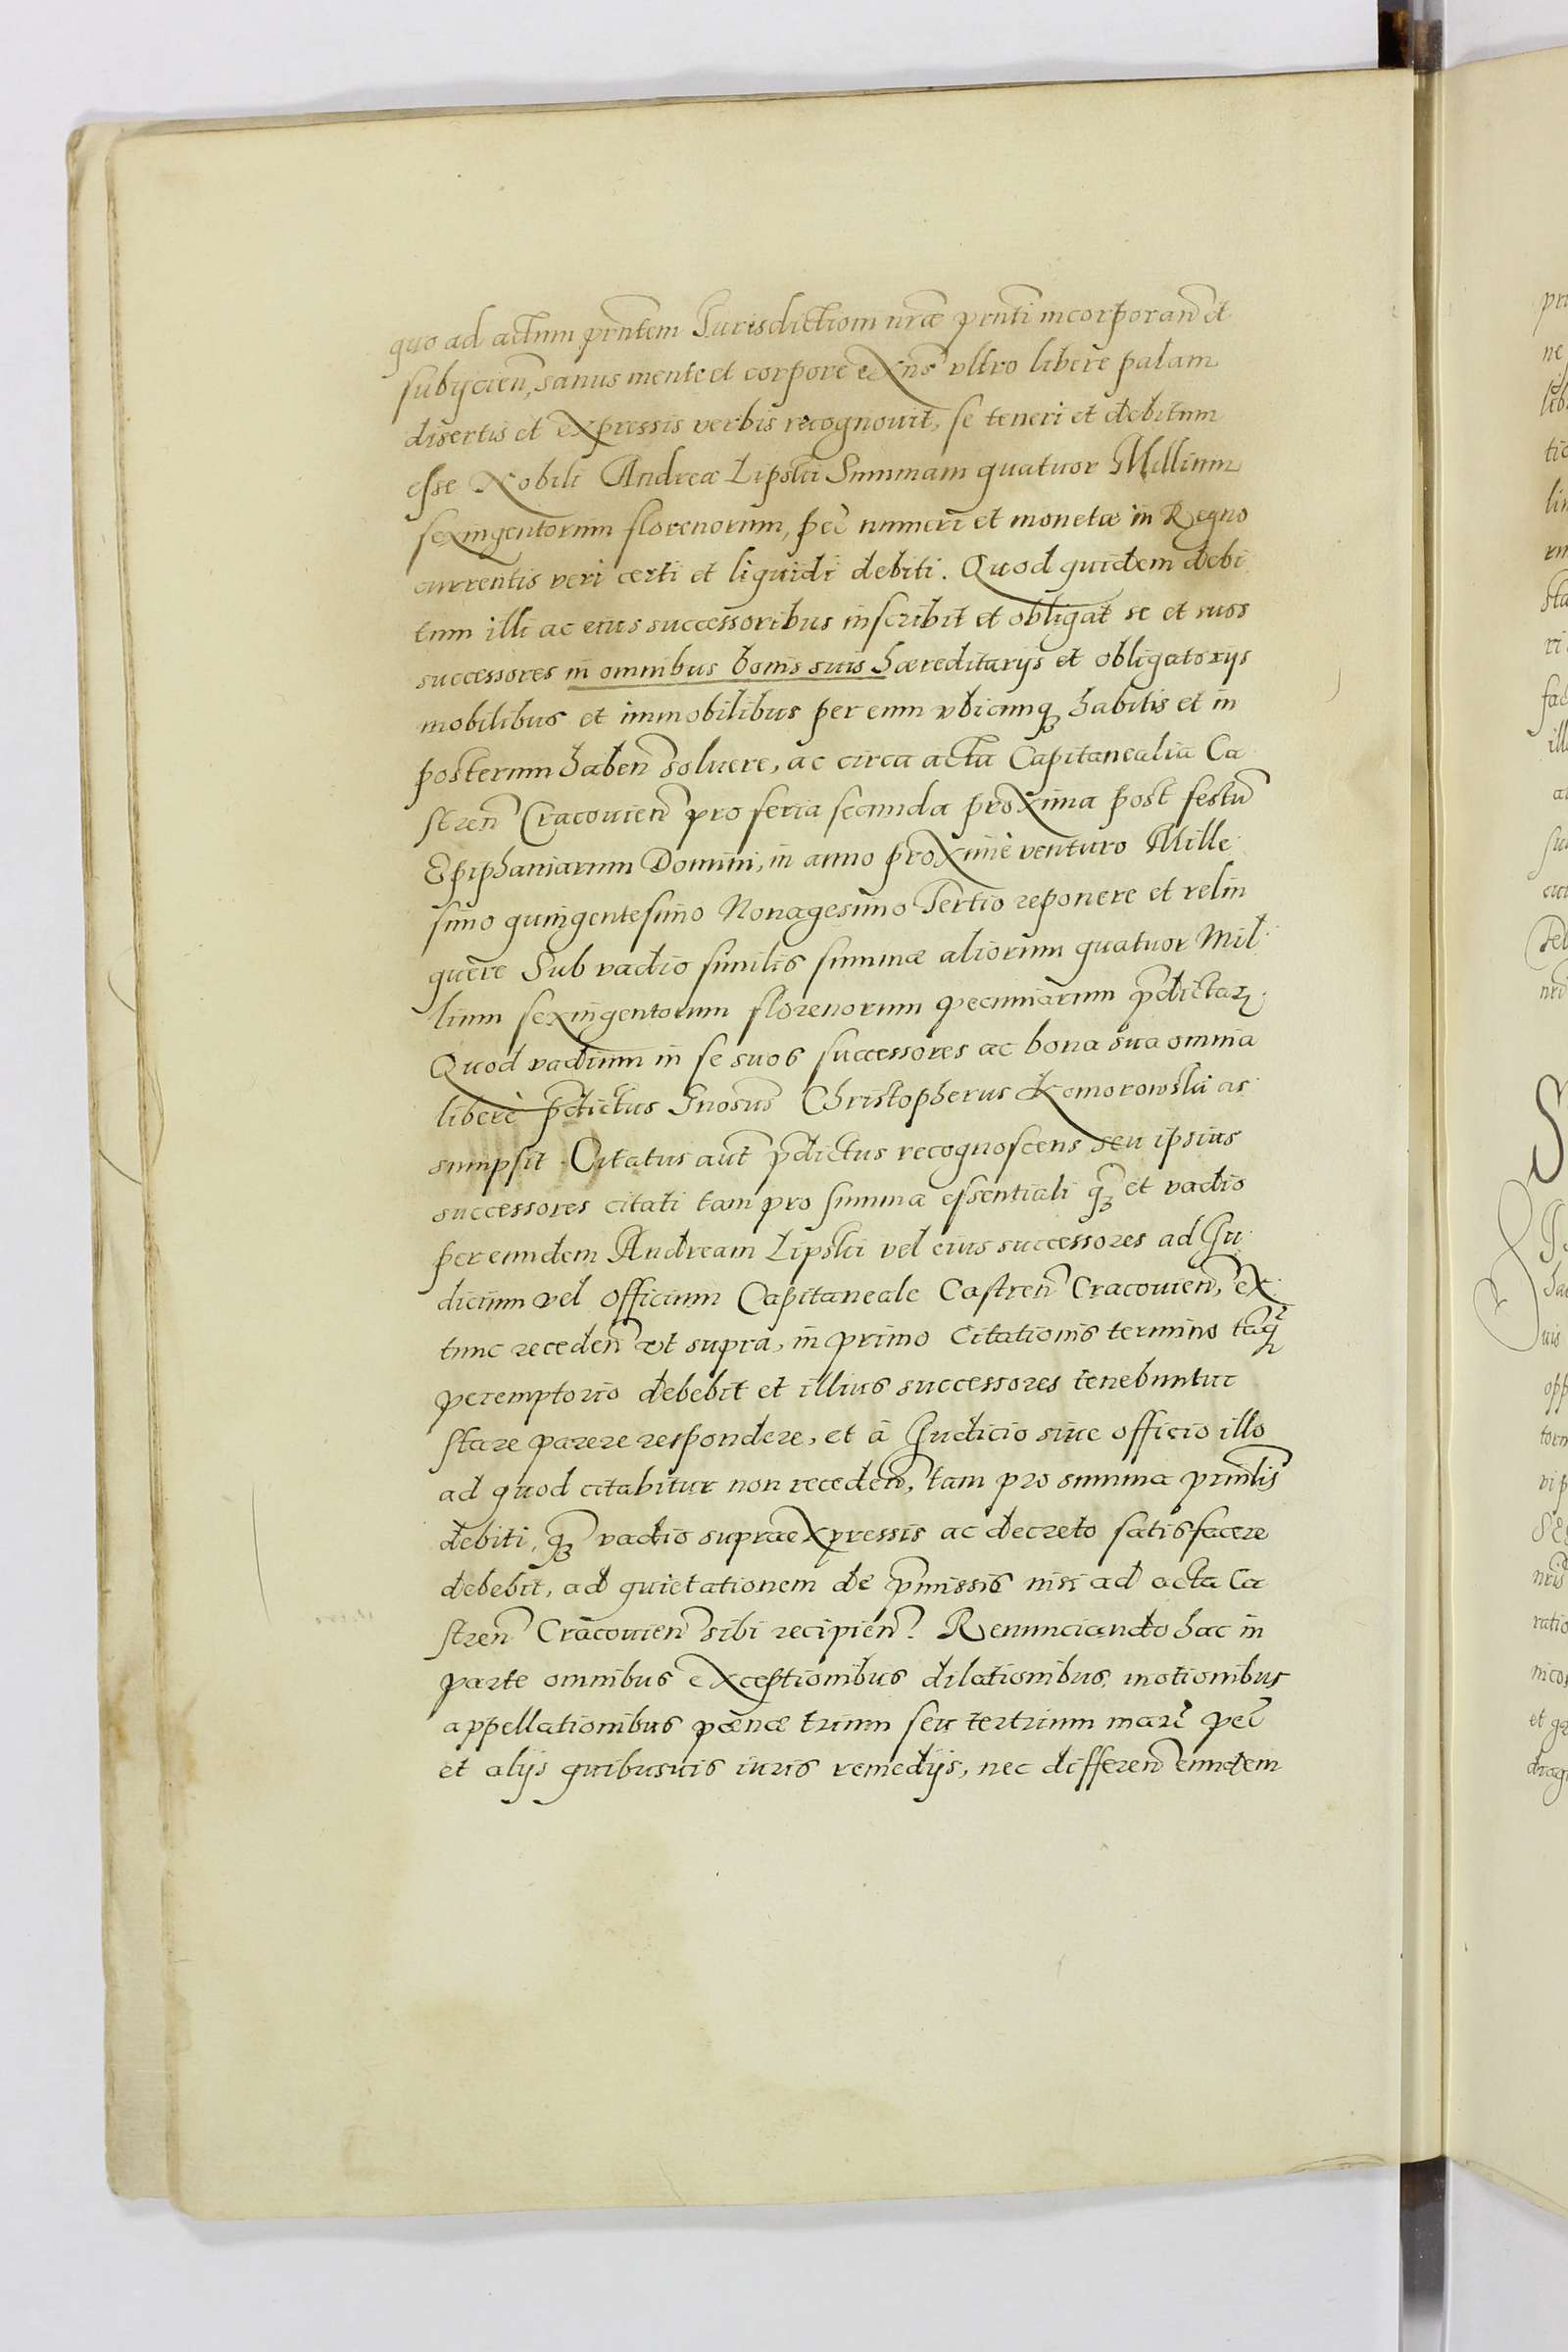 quo ad actum prñtem Jurisdictioni nr̃æ prñti incorporañ et
subijcieñ, sanus mente et corpore exñs vltro libere palam
disertis et expressis verbis recognouit, se teneri et debitum
esse Nobili Andreæ Lipski Summam quatuor Millium
sexingentorum florenorum, pec̃ numeri et monetæ in Regno
currentis veri certi et liquidi debiti. Quod quidem debi
tum illi ac eius successoribus inscribit et obligat se et suos
successores in omnibus bonis suis hæreditarijs et obligatorijs
mobilibus et immobilibus per eum vbicunq habitis et in
posterum habeñ soluere, ac circa acta Capitanealia Ca
streñ Cracouieñ pro feria secunda proxima post festũ
Epiphaniarum Domini, in anno proximè venturo Mille
simo quingentesimo Nonagesimo Tertio reponere et relin
quere Sub vadio similis summæ aliorum quatuor Mil
lium sexingentorum florenorum pecuniarum p̃dictaꝝ.
Quod vadium in se suos successores ac bona sua omnia
liberè p̃dictus Gnosus̃ Christopherus Komorowski as
sumpsit. Citatus aut̃ p̃dictus recognoscens seu ipsius
successores citati tam pro summa essentiali q̃ꝫ et vadio
per eundem Andream Lipski vel eius successores ad Ju
dicium vel officium Capitaneale Castreñ Cracouieñ, ex
tunc recedeñ vt supra, in primo Citationis termino tanq̃
peremptorio debebit et illius successores tenebuntur
stare parere respondere, et à Judicio siue officio illo
ad quod citabitur non recedeñ, tam pro summa prinлis̃
debiti, q̃ꝫ vadio supraexpressis ac decreto satisfacere
debebit, ad quietationem de p̃missis nisi ad acta Ca
streñ Cracouieñ sibi recipieñ. Renunciando hac in
parte omnibus exceptionibus dilationibus, motionibus
appellationibus pœnæ trium seu tertrium marc̃ pec̃
et alijs quibusuis iuris remedijs, nec differeñ eundem